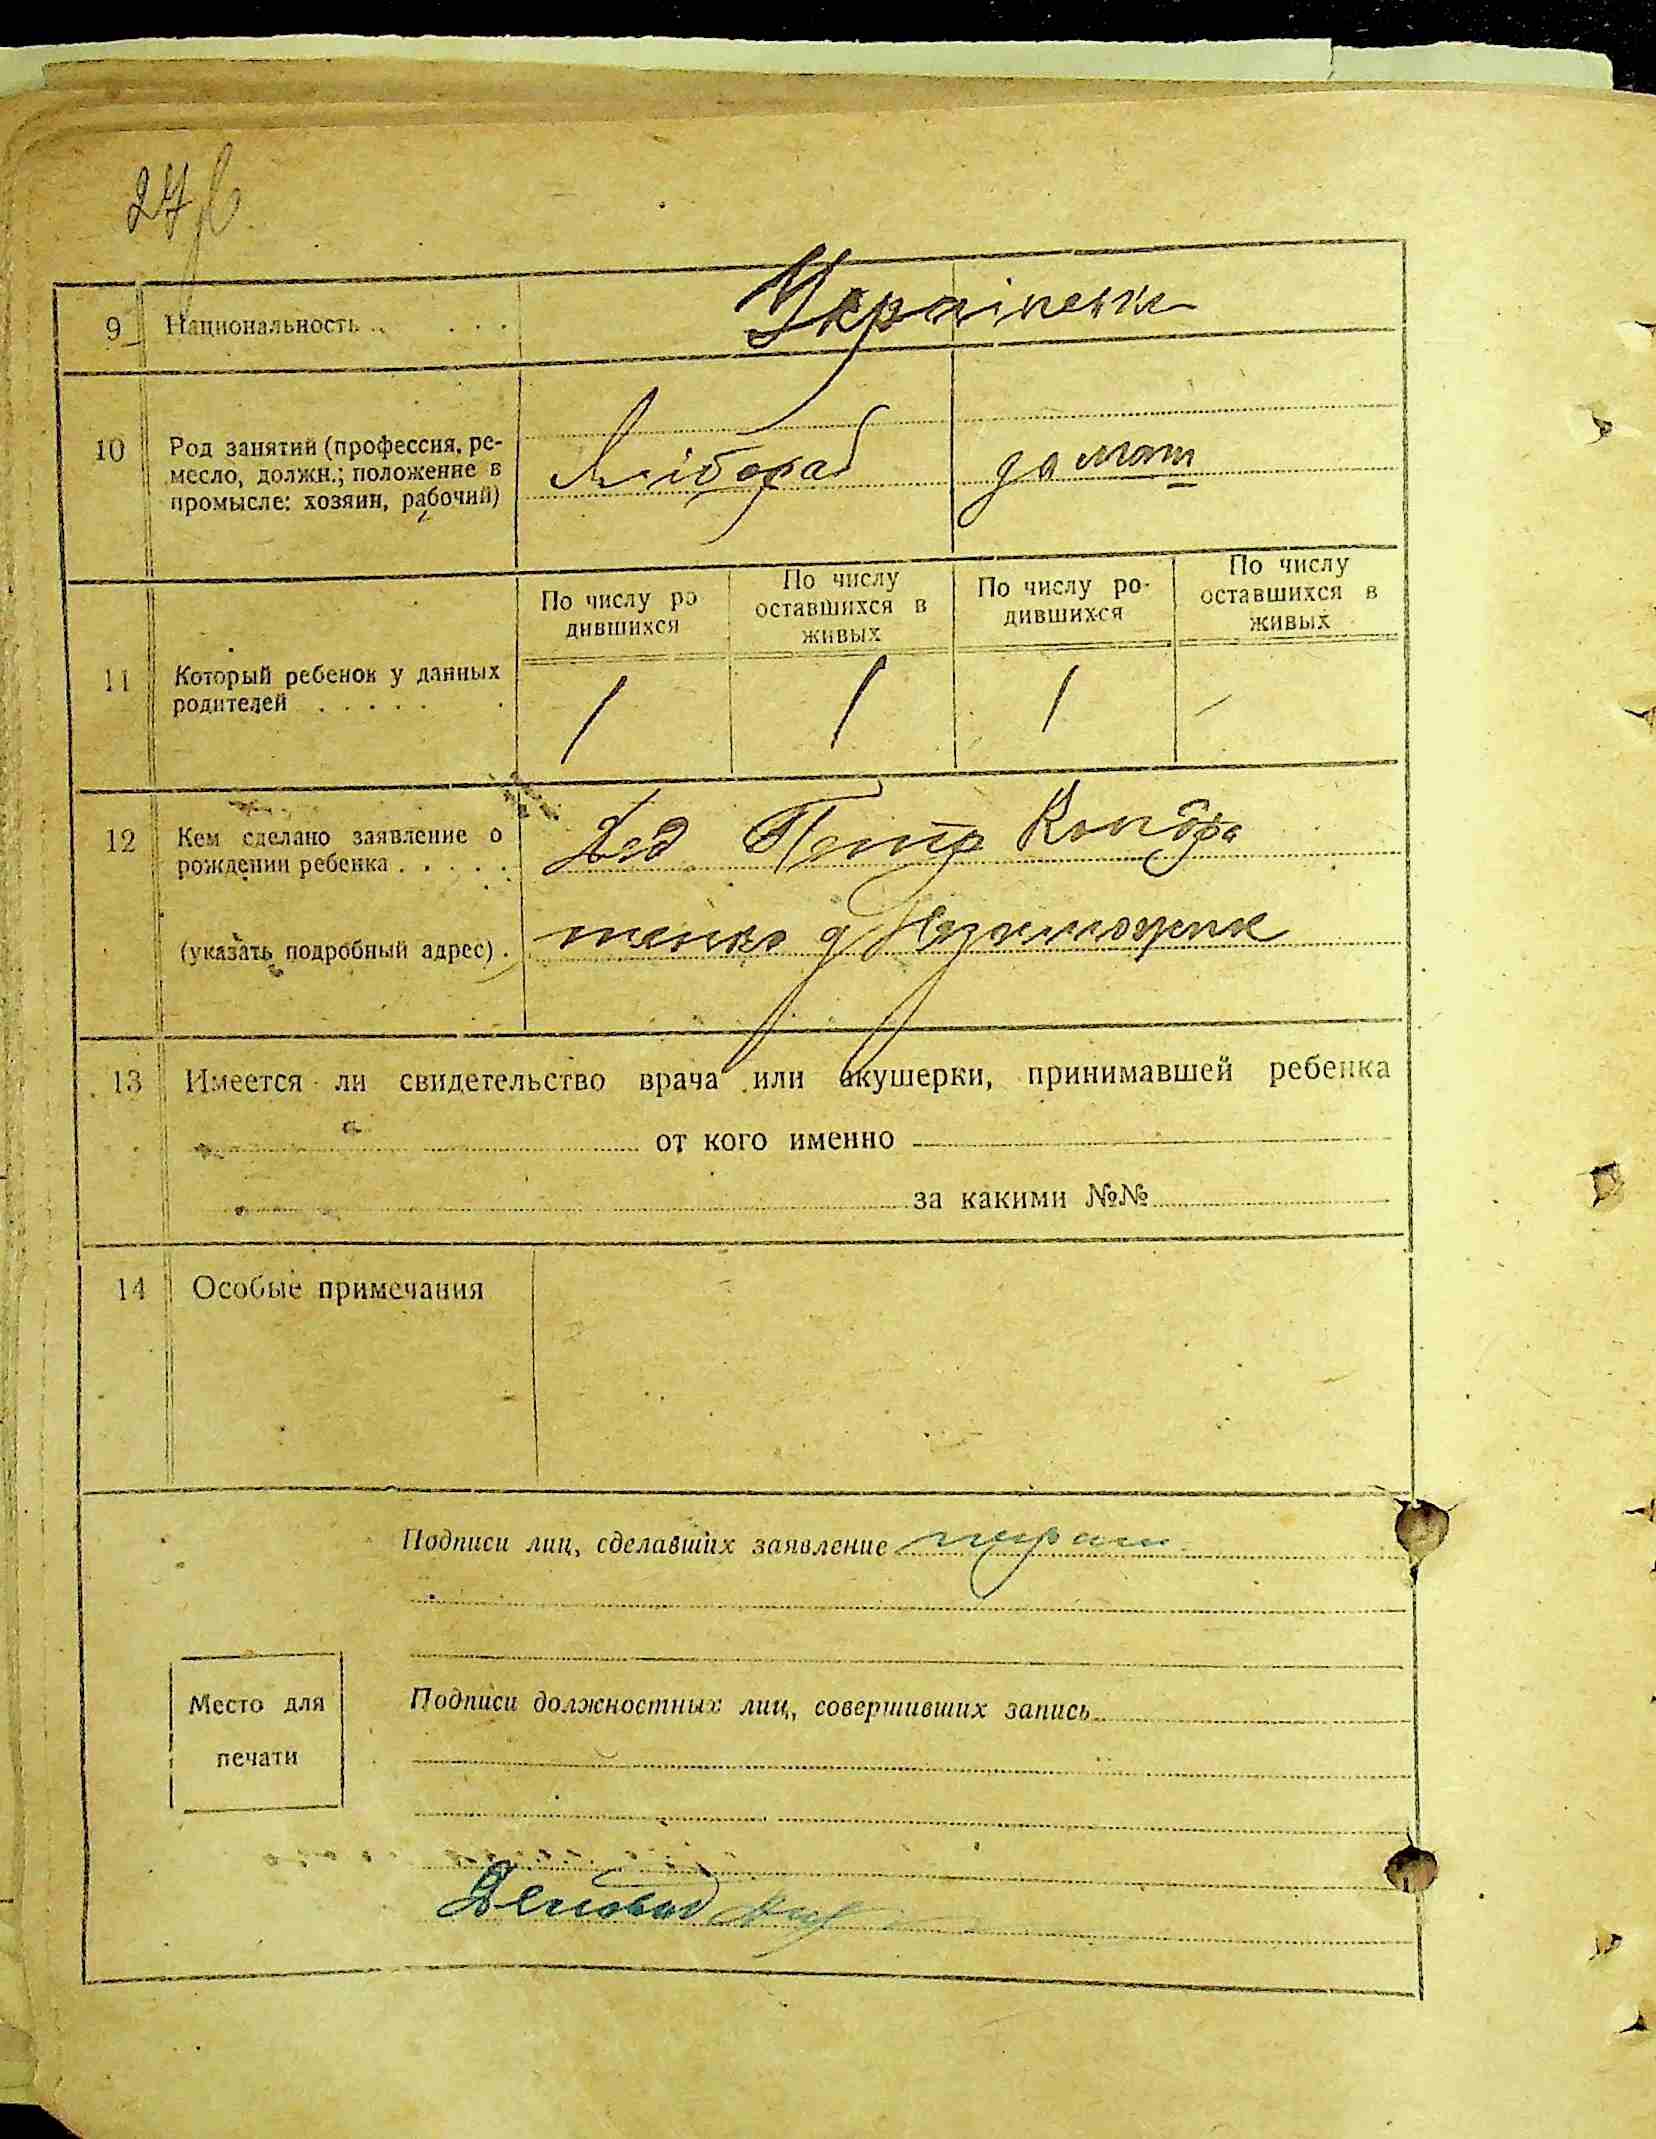 27
9 Национальность . . . . . Українська
10 Род занятий (профессия, ре-
месло, должн.; положение в
промысле: хозяин, рабочий)
Хлібораб дамат
По числу ро
дившихся
По числу
оставшихся в
живых
По числу ро-
дившихся
По числу
оставшихся в
живых
11 Который ребенок у данных
родителей . . . . . .
1 1 1 -
12 Кем сделано заявление о
рождении ребенка . . . . .
Дед Петр Кондра
(указать подробный адрес) .
тенко д Незаможник
13 Имеется ли свидетельство врача или акушерки, принимавшей ребенка
от кого именно
за какими №№
14 Особые примечания
Подписи лиц, сделавших заявление
Место для
печати
Подписи должностных лиц, совершивших запись